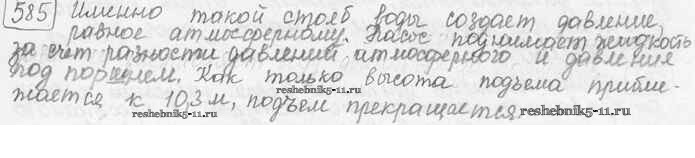 585 Именно такой столб воды создает давление,
равное атмосферному. Насос поднимает жидкость
за счет разности давлений атмосферного и давления
под поршнем. Как только высота подъема прибли-
жается к 10,3 м, подъем прекращается.
reshebnik5-11.ru reshebnik5-11.ru